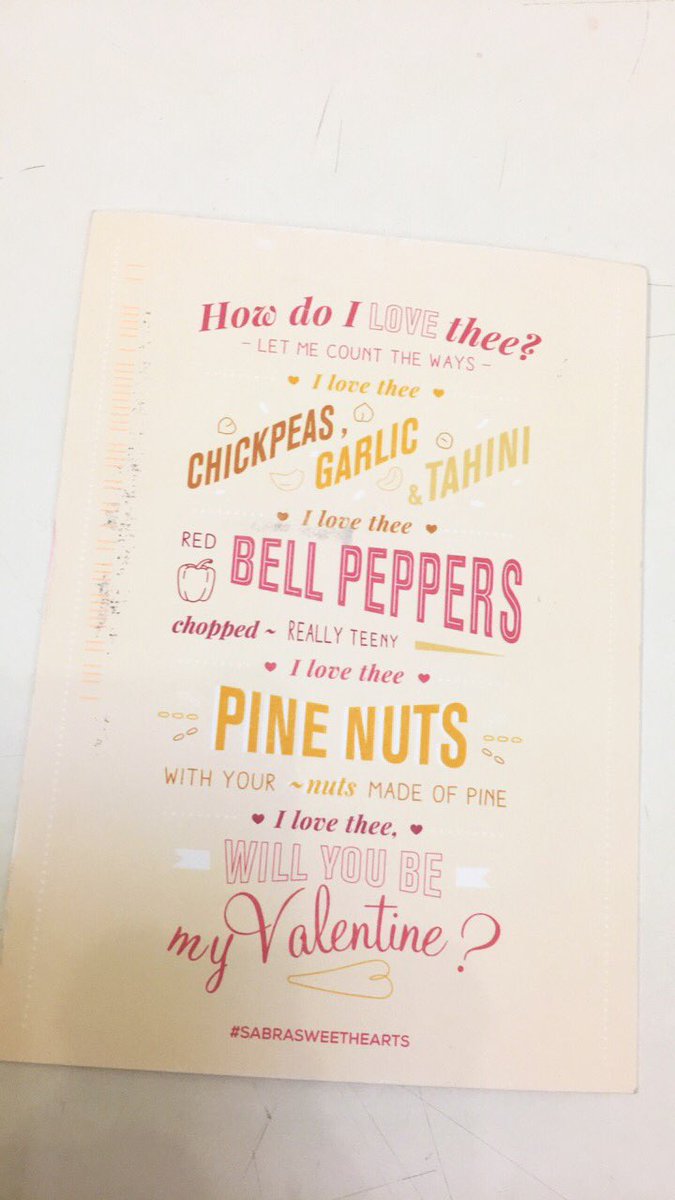 How do I LOVE thee?
– LET ME COUNT THE WAYS –
I love thee
CHICKPEAS, GARLIC & TAHINI
I love thee
RED BELL PEPPERS
chopped ~ REALLY TEENY
I love thee
PINE NUTS
WITH YOUR ~nuts MADE OF PINE
I love thee,
WILL YOU BE
my Valentine?
#SABRASWEETHEARTS